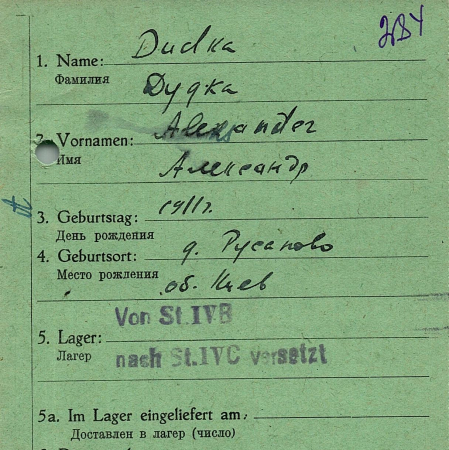 284
Dudka
1. Name:
Фамилия
Дудка
Alexander
2. Vornamen:
Имя
Александр
1911 г.
3. Geburtstag:
День рождения
д. Русаново
4. Geburtsort:
Место рождения
об. Киев
Von St.IVB
5. Lager:
Лагер
nach St.IVC versetzt
5a. Im Lager eingeliefert am:
Доставлен в лагер (число)